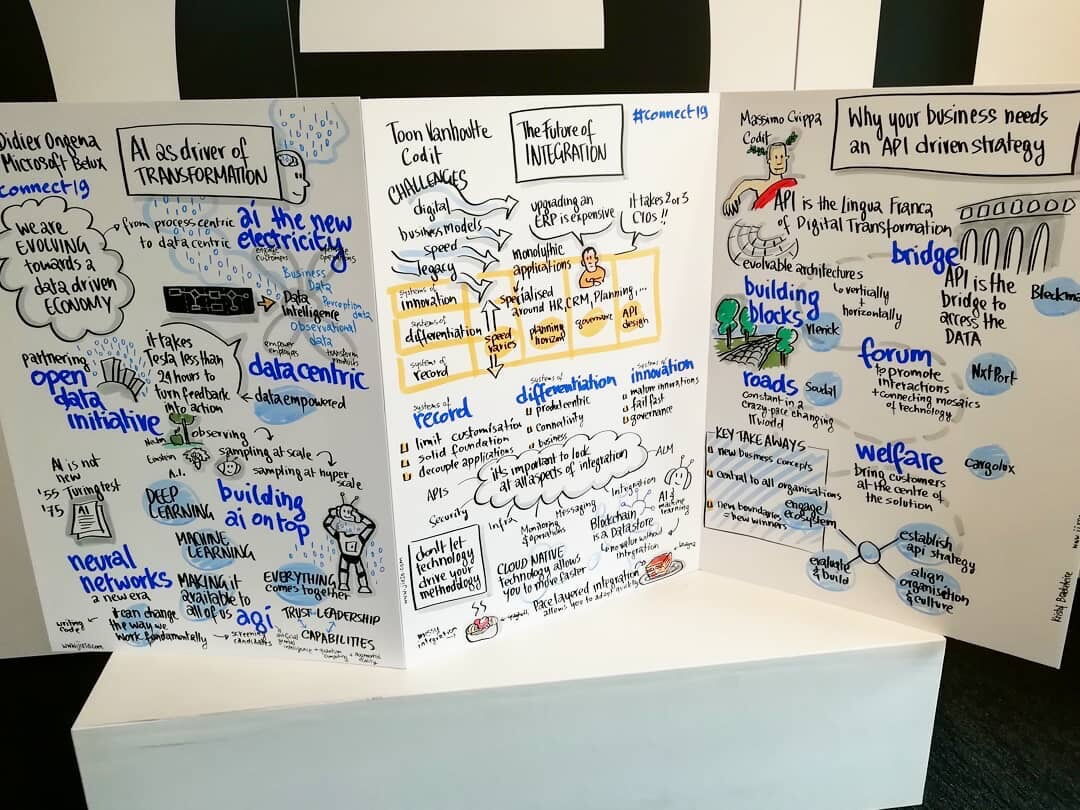 Didier Ongena
Microsoft Belux
Connect19
AI as driver of
TRANSFORMATION
we are
EVOLVING
towards a
data driven
ECONOMY
from process centric
to data centric
ai the new
electricity
engage
customers
Business
Data
Data
Intelligence
Perception
data
Observational
data
partnering
open
data
initiative
it takes
Tesla less than
24 hours to
turn feedback
into action
empower
employees
transform
products
data centric
data empowered
Newton
Einstein
A.I.
observing
sampling at scale
sampling at hyper
scale
AI is not
new
'55 Turingtest
'75
AI
DEEP
LEARNING
MACHINE
LEARNING
building
ai on top
neural
networks
a new era
MAKING it
available to
all of us
EVERYTHING
comes together
agi
TRUST LEADERSHIP
CAPABILITIES
writing
code?
it can change
the way we
work fundamentally
screening
candidates
artificial
general
intelligence + quantum
computing + augmented
reality
Toon Vanhoutte
Codit
The Future of
INTEGRATION
#connect19
CHALLENGES
digital
business models
speed
legacy
upgrading an
ERP is expensive
it takes 2 or 3
CIOs!!
monolythic
applications
systems of
innovation
systems of
differentiation
systems of
record
specialised
around HR, CRM, Planning,...
speed
varies
planning
horizon
governance
API
design
systems of
record
limit customisation
solid foundation
decouple applications
systems of
differentiation
product centric
connectivity
business
systems of
innovation
mature innovations
fail fast
governance
it's important to look
at all aspects of integration
APIS
ALM
Security
Infra
Monitoring
& operations
Messaging
Integration
Blockchain
is a Datastore
AI &
machine
learning
no value without
integration
don't let
technology
drive your
methodology
CLOUD NATIVE
technology allows
you to move faster
Pace layered integration
allows you to adapt
lasagna
spaghetti
messy
integration
Massimo Crippa
Codit
Why your business needs
an API driven strategy
API is the Lingua Franca
of Digital Transformation
evolvable architectures
vertically
+
horizontally
bridge
API is the
bridge to
access the
DATA
building
blocks
Vlerick
forum
to promote
interactions
+ connecting mosaics
of technology
NxtPort
roads
Soudal
constant in a
crazy-pace changing
IT world
KEY TAKE AWAYS
new business concepts
central to all organisations
new boundaries
= new winners
welfare
bring customers
at the centre of
the solution
Cargolux
engage
ecosystem
establish
api strategy
evaluate
& build
align
organisation
& culture